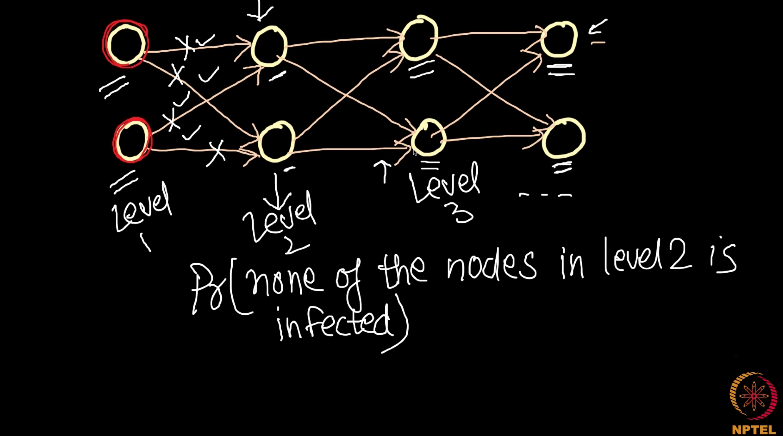 Level
1
Level
2
Level
3
- - - -
Pr(none of the nodes in level 2 is
infected)
NPTEL